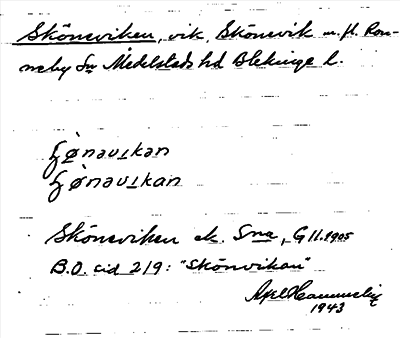 Skönsviken, vik, Skönsvik m. fl. Ron-
neby Sn Medelstads hd Blekinge l.
ʄø̀nəvɪkən
ʄø̀nəvɪkan
Skönsviken ek. Sna, G 11. 1905
B.O. sid 219: "Skönvikan"
Axel
1943